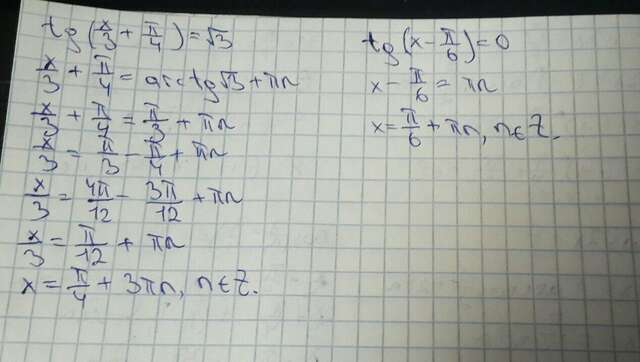 tg(x/3 + π/4) = √3
x/3 + π/4 = arctg√3 + πn
x/3 + π/4 = π/3 + πn
x/3 = π/3 - π/4 + πn
x/3 = 4π/12 - 3π/12 + πn
x/3 = π/12 + πn
x = π/4 + 3πn, n∈Z.
tg(x - π/6) = 0
x - π/6 = πn
x = π/6 + πn, n∈Z.